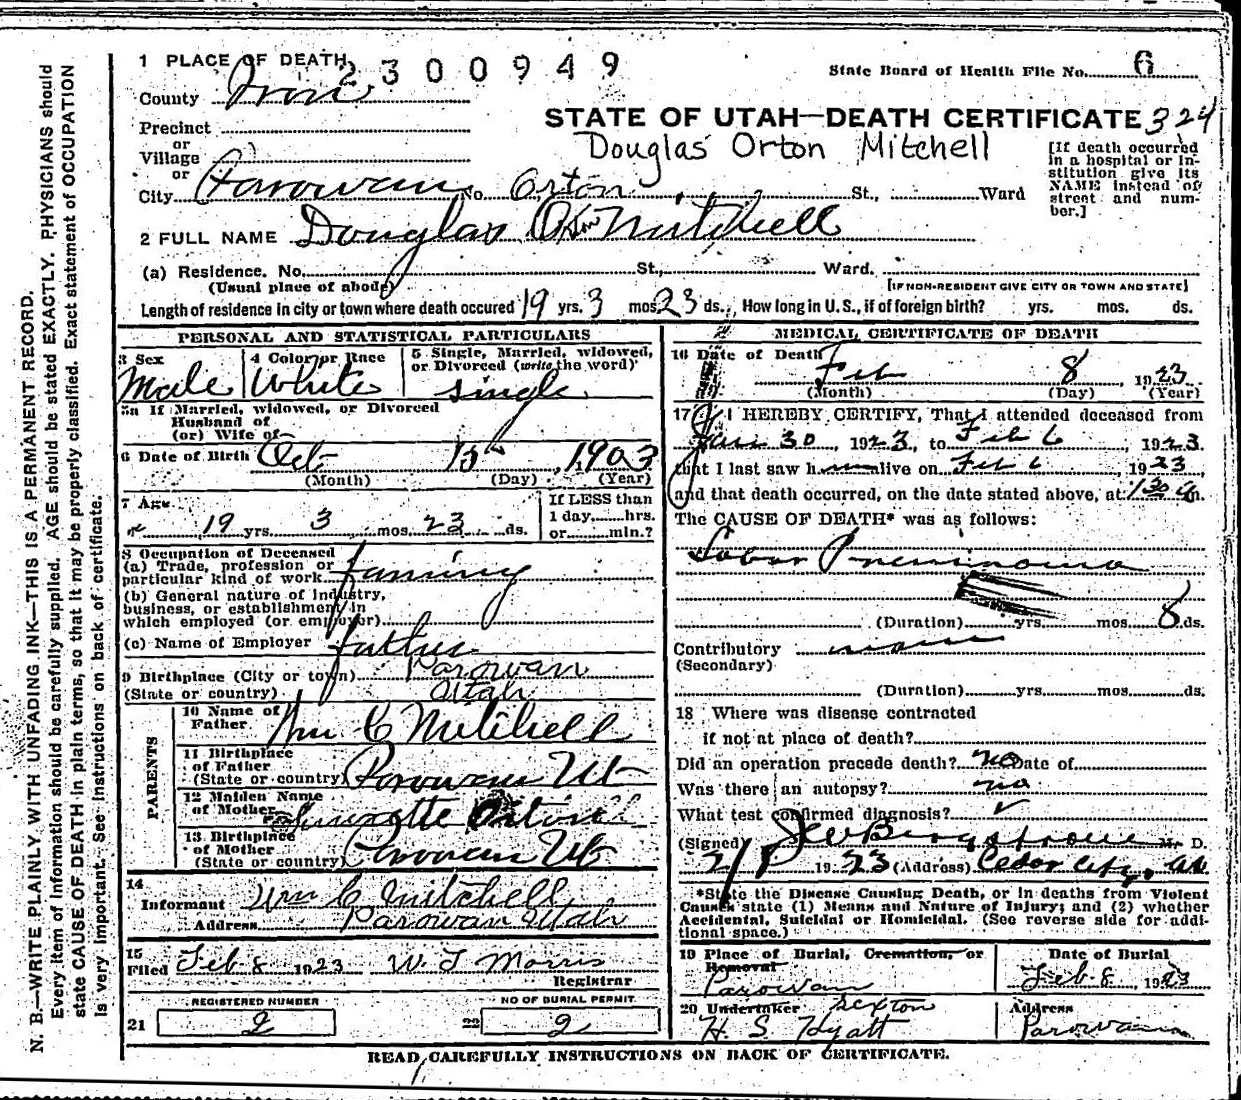 1 PLACE OF DEATH
2300949
State Board of Health File No. 6
County Iron
STATE OF UTAH—DEATH CERTIFICATE 324
Precinct
or
Village
or
Douglas Orton Mitchell
[If death occurred in a hospital or institution give its NAME instead of street and number.]
City Parowan No. Orton St., Ward
2 FULL NAME Douglas Orton Mitchell
(a) Residence. No. St., Ward.
(Usual place of abode) [IF NON-RESIDENT GIVE CITY OR TOWN AND STATE]
Length of residence in city or town where death occured 19 yrs. 3 mos. 23 ds., How long in U.S., if of foreign birth? yrs. mos. ds.
PERSONAL AND STATISTICAL PARTICULARS
3 Sex
Male
4 Color or Race
White
5 Single, Married, widowed, or Divorced (write the word)
single
5a If Married, widowed, or Divorced
Husband of
(or) Wife of
6 Date of Birth Oct 15th, 1903
(Month) (Day) (Year)
7 Age
19 yrs. 3 mos. 23 ds.
If LESS than
1 day, hrs.
or min.?
8 Occupation of Deceased
(a) Trade, profession or
particular kind of work farming
(b) General nature of industry,
business, or establishment in
which employed (or employer)
(c) Name of Employer father
9 Birthplace (City or town) Parowan
(State or country) Utah
PARENTS
10 Name of
Father Wm C Mitchell
11 Birthplace
of Father
(State or country) Parowan Ut
12 Maiden Name
of Mother Orton
13 Birthplace
of Mother
(State or country) Parowan Ut
14
Informant Wm C Mitchell
Address Parowan Utah
15
Filed Feb 8 1923 W T Morris
Registrar
REGISTERED NUMBER
21 2
NO OF BURIAL PERMIT
22 2
MEDICAL CERTIFICATE OF DEATH
16 Date of Death Feb 8, 1923
(Month) (Day) (Year)
17 I HEREBY CERTIFY, That I attended deceased from
Jan 30 1923, to Feb 6, 1923
that I last saw him alive on Feb 6, 1923
and that death occurred, on the date stated above, at 1 30 a m.
The CAUSE OF DEATH* was as follows:
Lobar Pneumonia
(Duration) yrs. mos. 8 ds.
Contributory none
(Secondary)
(Duration) yrs. mos. ds.
18 Where was disease contracted
if not at place of death?
Did an operation precede death? no Date of
Was there an autopsy? no
What test confirmed diagnosis?
(Signed) Bergstrom M. D.
2/8 1923 (Address) Cedar City, Ut
*State the Disease Causing Death, or in deaths from Violent
Causes state (1) Means and Nature of Injury; and (2) whether
Accidental, Suicidal or Homicidal. (See reverse side for addi-
tional space.)
19 Place of Burial, Cremation, or
Removal
Parowan
Date of Burial
Feb 8, 1923
20 Undertaker Sexton
H. S. Hyatt
Address
Parowan
READ CAREFULLY INSTRUCTIONS ON BACK OF CERTIFICATE.
N. B—WRITE PLAINLY WITH UNFADING INK—THIS IS A PERMANENT RECORD.
Every item of information should be carefully supplied. AGE should be stated EXACTLY. PHYSICIANS should
state CAUSE OF DEATH in plain terms, so that it may be properly classified. Exact statement of OCCUPATION
is very important. See instructions on back of certificate.